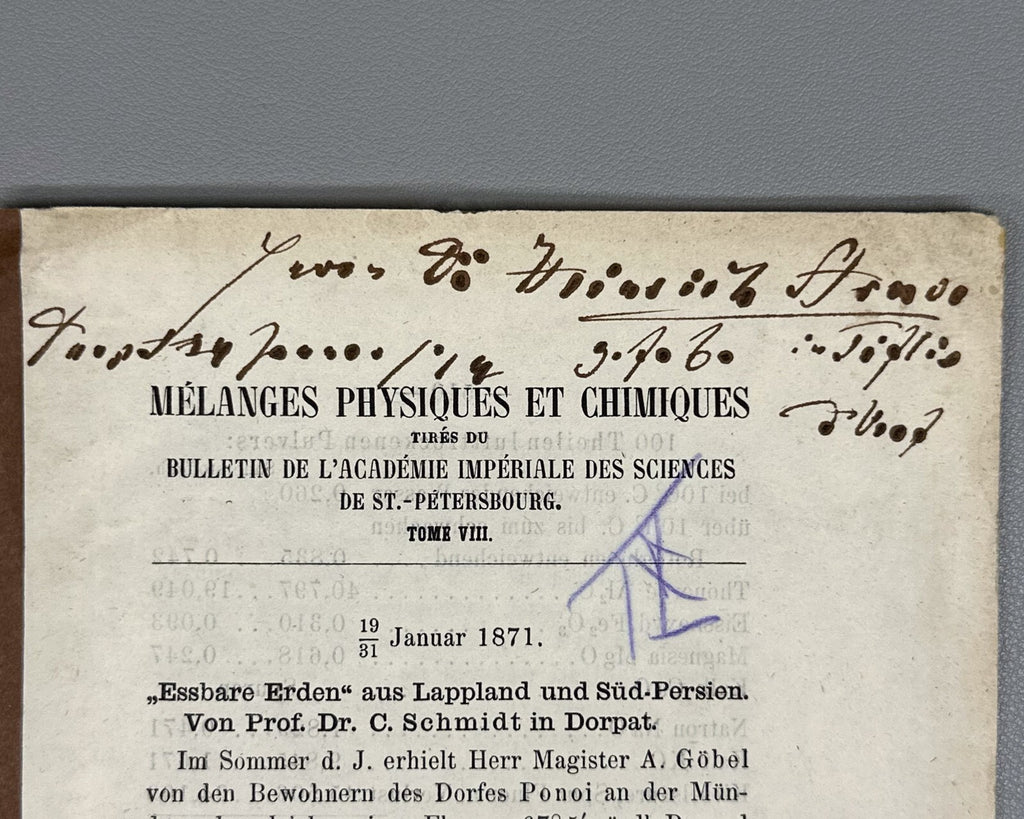 Herrn Dr Heinrich Struve
in Tiflis
MÉLANGES PHYSIQUES ET CHIMIQUES
TIRÉS DU
BULLETIN DE L'ACADÉMIE IMPÉRIALE DES SCIENCES
DE ST.-PÉTERSBOURG.
TOME VIII.
19/31 Januar 1871.
„Essbare Erden“ aus Lappland und Süd-Persien.
Von Prof. Dr. C. Schmidt in Dorpat.
Im Sommer d. J. erhielt Herr Magister A. Göbel
von den Bewohnern des Dorfes Ponoi an der Mün-